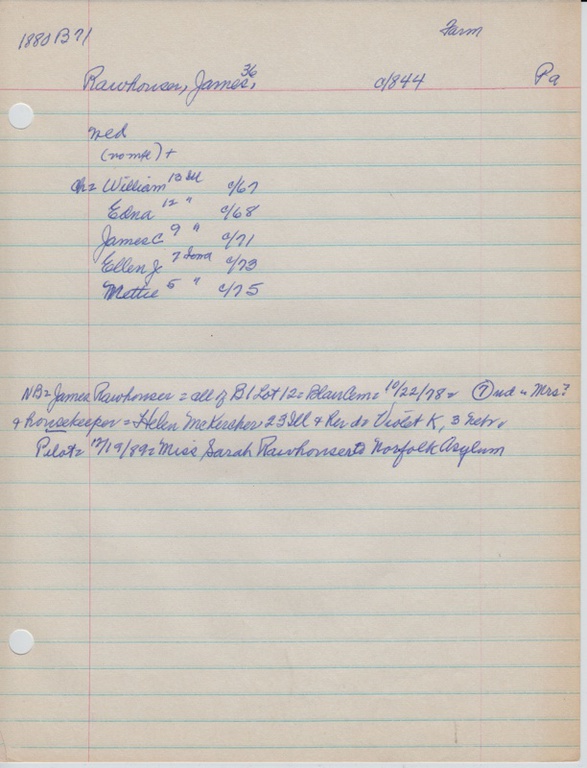 1880 B71 Farm
Rawhouser, James, 36 c/844 Pa
wed
(no mfe) +
ch = William 13 Ill c/67
Edna 12 " c/68
James C. 9 " c/71
Ellen J. 7 Iowa c/73
Mettie 5 " c/75
NB = James Rawhouser = all of B1 Lot 12 = Blair Cem = 10/22/78 = ? wed = Mrs?
& housekeeper = Helen McKercher 23 Ill & Her da Violet K, 3 Nebr
Pilot = 12/19/89 = Miss Sarah Rawhouser to Norfolk Asylum